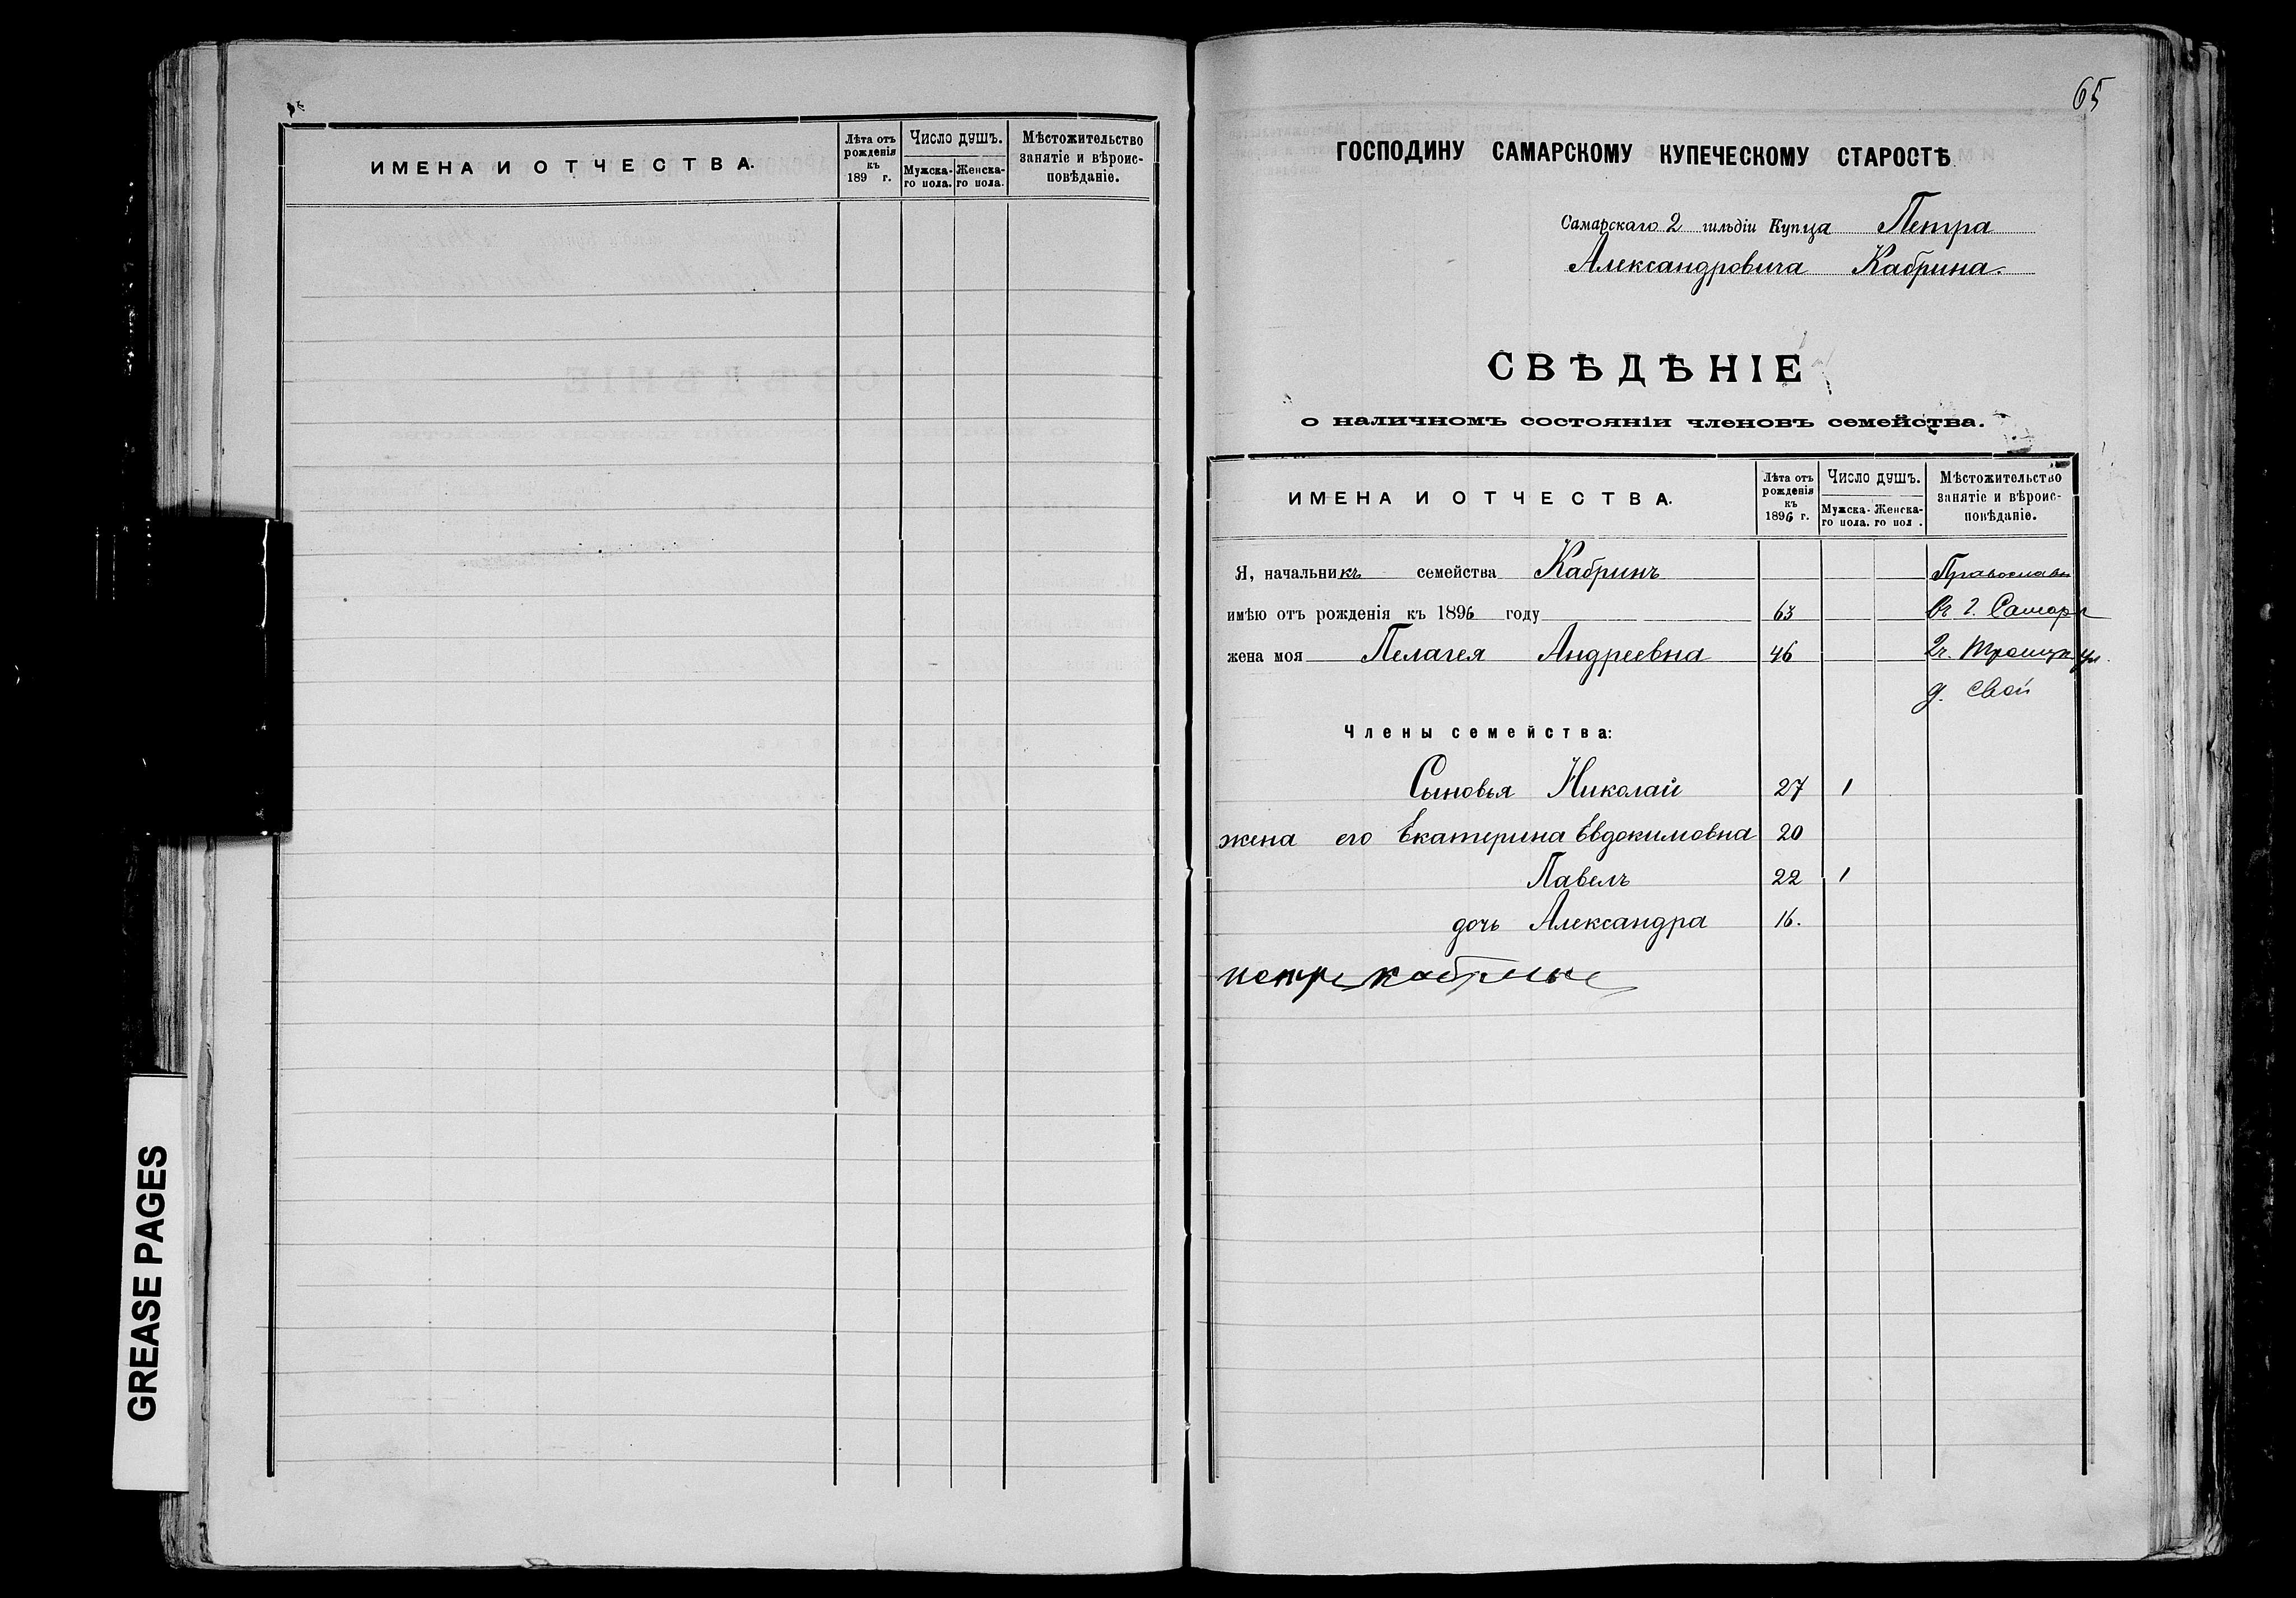 ИМЕНА И ОТЧЕСТВА.
Лѣта отъ рожденія къ 189 г.
Число душъ.
Мужска-го пола.
Женска-го пола.
Мѣстожительство занятіе и вѣроис-повѣданіе.
65
ГОСПОДИНУ САМАРСКОМУ КУПЕЧЕСКОМУ СТАРОСТѢ.
Самарскаго 2 гильдіи Купца Петра
Александровича Кабрина.
СВѢДѢНІЕ
о наличномъ состояніи членовъ семейства.
ИМЕНА И ОТЧЕСТВА.
Лѣта отъ рожденія къ 1896 г.
Число душъ.
Мужска-го пола.
Женска-го пол .
Мѣстожительство занятіе и вѣроис-повѣданіе.
Я, начальникъ семейства Кабринъ Православн
имѣю отъ рожденія къ 1896 году 63 Въ г. Самарѣ
жена моя Пелагея Андреевна 46 2ч. Троицк ул.
д. свой
Члены семейства:
Сыновья Николай 27 1
жена его Екатерина Евдокимовна 20
Павелъ 22 1
дочь Александра 16.
петръ кабринъ
GREASE PAGES